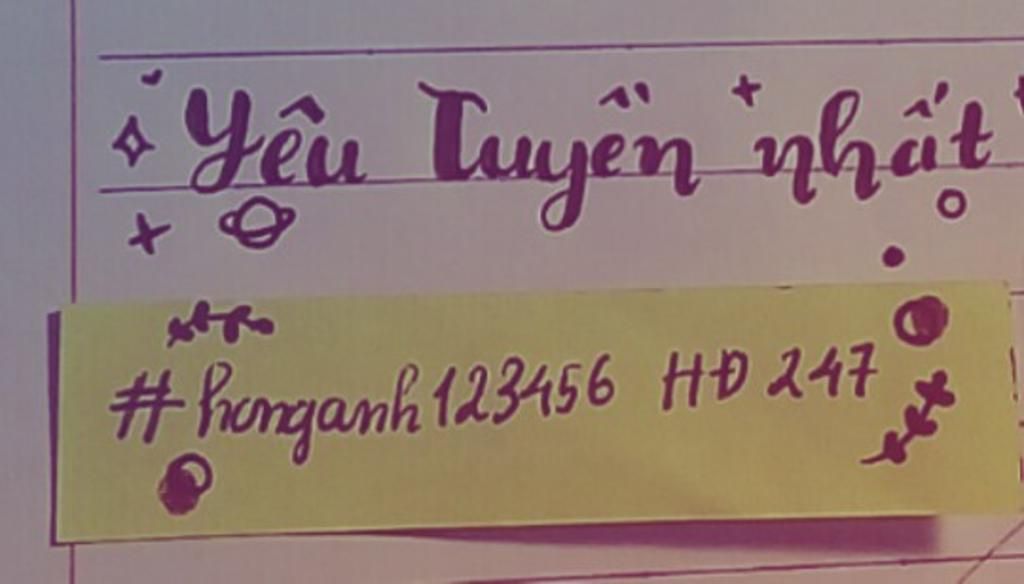 Yêu Tuyền nhất
#honganh123456 HĐ 247